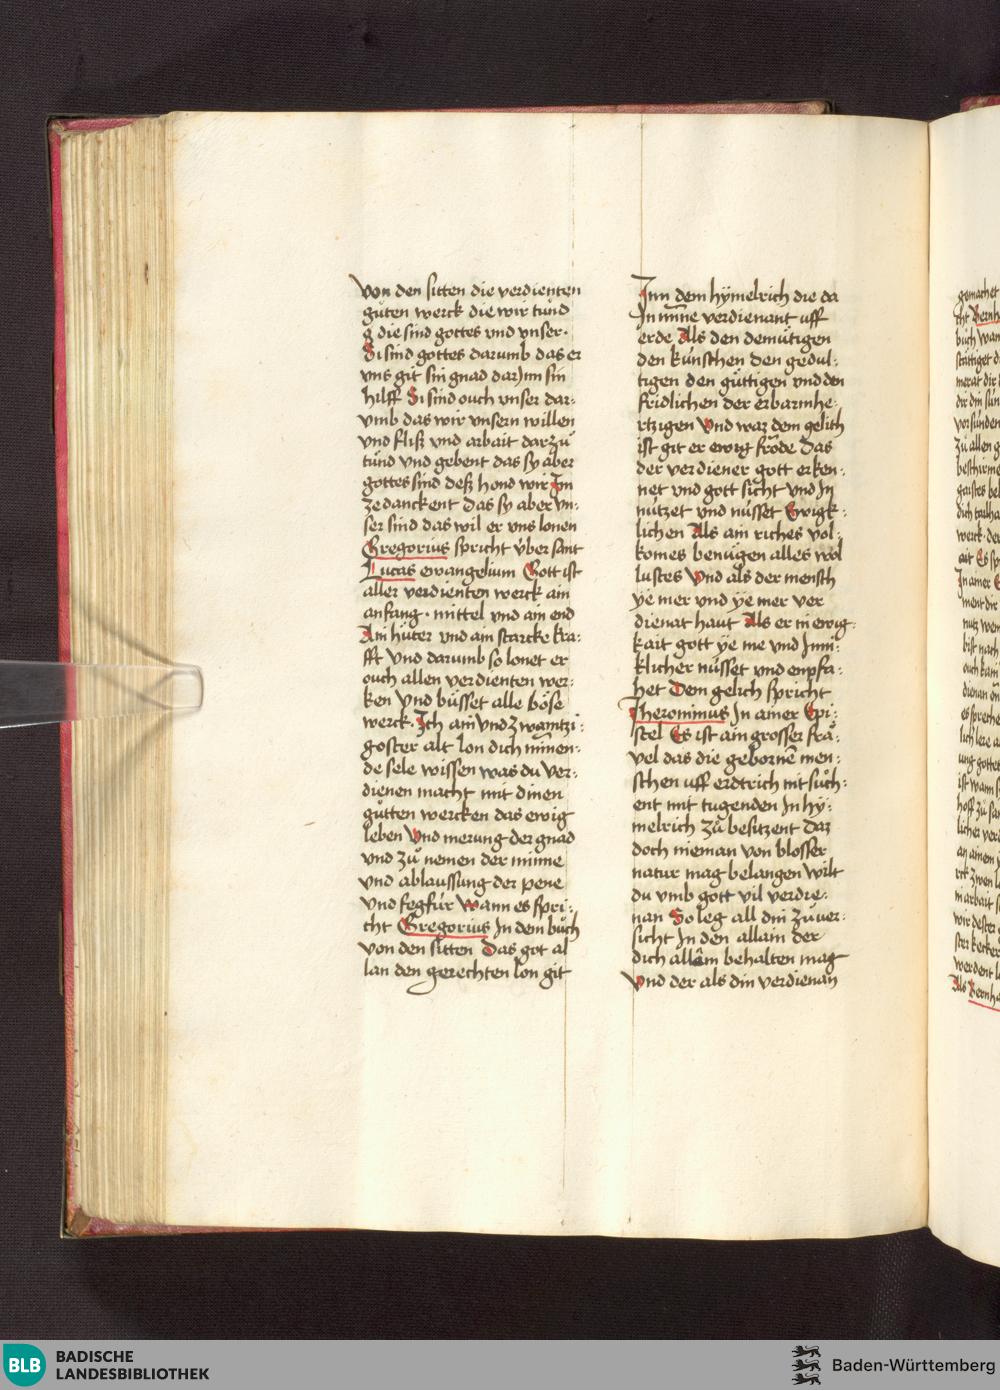 von den sitten die verdienten
gůten werck die wir tůnd
g die sind gottes vnd vnser·
Si sind gottes darumb das er
vns git sin gnad dar Inn sin
hilff Si sind ouch vnser dar:
vmb das wir vnsern willen
vnd fliß vnd arbait dar zů
tůnd vnd gebent das sy aber
gottes sind deß hond wir Im
ze danckent das sy aber vn:
ser sind das wil er vns lonen
Gregorius spricht v́ber sant
Lucas ewangelium Gott ist
aller verdienten werck ain
anfang · mittel vnd ain end
Ain hůter vnd ain starcke kra:
fft Vnd darumb so lonet er
ouch allen verdienten wer:
ken Vnd bůsset alle böse
werck. Ich ain vnd zwaintzi:
goster alt lon dich minen:
de sele wissen was du ver:
dienen macht mit dinen
gůtten wercken das ewig
leben Vnd merung der gnad
vnd zů nemen der minne
vnd ablaussung der pene
vnd fegfúr Wann es spri:
cht Gregorius In dem bůch
von den sitten Das got al
lan den gerechten lon git
Inn dem hÿmelrich die da
In minne verdienant uff
erde Als den demůtigen
den kúnschen den gedul:
tigen den gůttigen vnd den
fridlichen der erbarmhe:
rtzigen Vnd waz dem gelich
ist git er ewig fröde Das
der verdiener gott erken:
net vnd gott sicht vnd In
nútzet vnd nússet Ewigk:
lichen Als ain riches vol:
komes benůgen alles wol
lustes Vnd als der mensch
ÿe mer vnd ÿe mer ver
dienat haut Als er in ewig:
kait gott ÿe me vnd Inni:
klicher nússet vnd enpfa:
het Dem gelich spricht
Jherominus In ainer Epi:
stel Es ist ain grosser frä:
vel das die gebornē men:
schen uff erdtrich nit sůch:
ent mit tugenden In hÿ:
melrich zů besitzent Daz
doch nieman von blosser
natur mag belangen wilt
du vmb gott vil verdie:
nan So leg all din zůver:
sicht In den allain der
dich allain behalten mag
Vnd der als din verdienan
gemachet
cht Bernh
bůch wan
BLB BADISCHE
LANDESBIBLIOTHEK
Baden-Württemberg